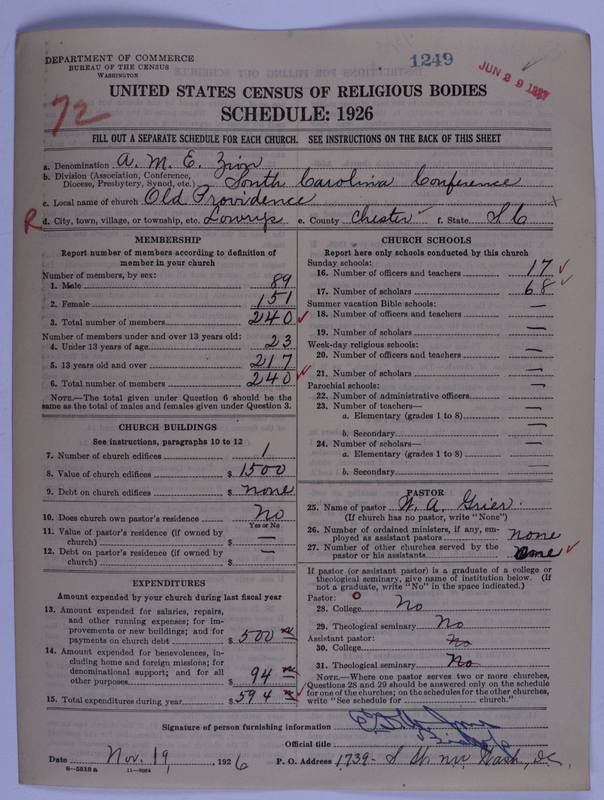 DEPARTMENT OF COMMERCE
BUREAU OF THE CENSUS
WASHINGTON
1249
JUN 29 1927
72
UNITED STATES CENSUS OF RELIGIOUS BODIES
SCHEDULE: 1926
FILL OUT A SEPARATE SCHEDULE FOR EACH CHURCH. SEE INSTRUCTIONS ON THE BACK OF THIS SHEET
a. Denomination A. M. E. Zion
b. Division (Association, Conference, Diocese, Presbytery, Synod, etc.) South Carolina Conference
c. Local name of church Old Providence x
R d. City, town, village, or township, etc. Lowrys e. County Chester f. State S C
MEMBERSHIP
Report number of members according to definition of member in your church
Number of members, by sex:
1. Male 89
2. Female 151
3. Total number of members 240
Number of members under and over 13 years old:
4. Under 13 years of age 23
5. 13 years old and over 217
6. Total number of members 240
NOTE.—The total given under Question 6 should be the same as the total of males and females given under Question 3.
CHURCH BUILDINGS
See instructions, paragraphs 10 to 12
7. Number of church edifices 1
8. Value of church edifices $ 1500
9. Debt on church edifices $ none
10. Does church own pastor's residence No
Yes or No
11. Value of pastor's residence (if owned by church) $ —
12. Debt on pastor's residence (if owned by church) $ —
EXPENDITURES
Amount expended by your church during last fiscal year
13. Amount expended for salaries, repairs, and other running expenses; for improvements or new buildings; and for payments on church debt $ 500
14. Amount expended for benevolences, including home and foreign missions; for denominational support; and for all other purposes $ 94
15. Total expenditures during year $ 594
CHURCH SCHOOLS
Report here only schools conducted by this church
Sunday schools:
16. Number of officers and teachers 17
17. Number of scholars 68
Summer vacation Bible schools:
18. Number of officers and teachers —
19. Number of scholars —
Week-day religious schools:
20. Number of officers and teachers —
21. Number of scholars —
Parochial schools:
22. Number of administrative officers —
23. Number of teachers—
a. Elementary (grades 1 to 8) —
b. Secondary —
24. Number of scholars—
a. Elementary (grades 1 to 8) —
b. Secondary —
PASTOR
25. Name of pastor W. A. Grier.
(If church has no pastor, write "None")
26. Number of ordained ministers, if any, employed as assistant pastors none
27. Number of other churches served by the pastor or his assistants one
If pastor (or assistant pastor) is a graduate of a college or theological seminary, give name of institution below. (If not a graduate, write "No" in the space indicated.)
Pastor: o
28. College No
29. Theological seminary No
Assistant pastor:
30. College No
31. Theological seminary No
NOTE.—Where one pastor serves two or more churches, Questions 28 and 29 should be answered only on the schedule for one of the churches; on the schedules for the other churches, write "See schedule for ______ church."
Signature of person furnishing information
Official title
Date Nov. 19, 1926 P. O. Address 1739- S St nw Wash, DC,
8—5518 a 11—9064